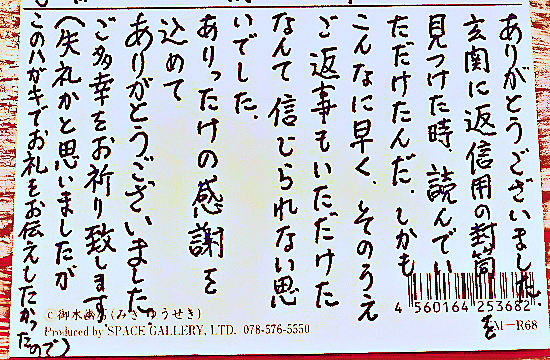 ありがとうございました。
玄関に返信用の封筒を
見つけた時、読んでい
ただけたんだ、しかも
こんなに早く、そのうえ
ご返事もいただけた
なんて信じられない思
いでした。
ありったけの感謝を
込めて
ありがとうございました
ご多幸をお祈り致します
(失礼かと思いましたが
このハガキでお礼をお伝えしたかった
ので)
Produced by SPACE GALLERY, LTD. 078-576-5550
4 560164 253682
M-R68